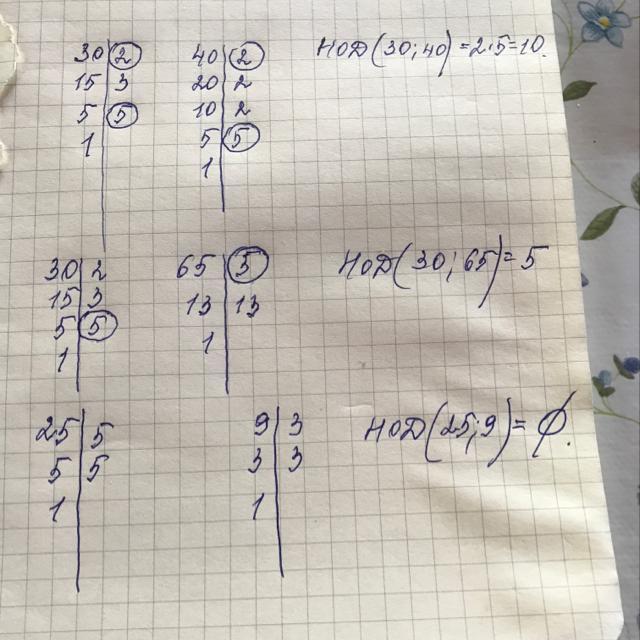 30 | 2 40 | 2 НОД(30;40)=2·5=10.
15 | 3 20 | 2
5 | 5 10 | 2
1 | 5 | 5
1 |
30 | 2 65 | 5 НОД(30;65)=5
15 | 3 13 | 13
5 | 5 1 |
1 |
25 | 5 9 | 3 НОД(25;9)=∅.
5 | 5 3 | 3
1 | 1 |